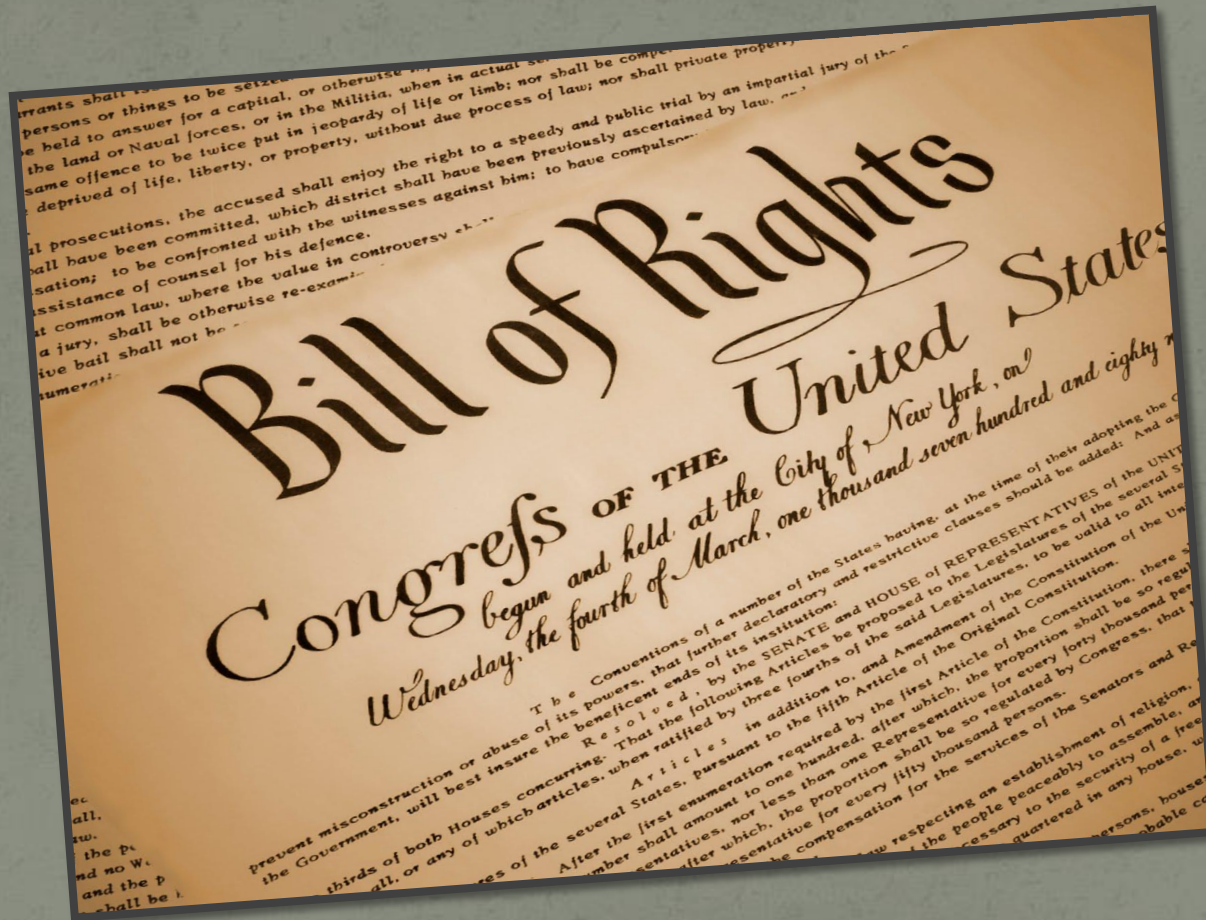 shall
persons or things to be
be held to answer for a capital, or otherwise
the land or Naval forces, or in the Militia, when in actual
same offence to be twice put in jeopardy of life or limb; nor shall be
deprived of life, liberty, or property, without due process of law; nor shall private
prosecutions, the accused shall enjoy the right to a speedy and public trial by an impartial jury of the
have been committed, which district shall have been previously ascertained by law,
to be confronted with the witnesses against him; to have
assistance of counsel for his defence.
at common law, where the value in controversy
a jury, shall be otherwise
bail shall not be
Bill of Rights
Congreſs OF THE United States
begun and held at the City of New York, on
Wednesday, the fourth of March, one thousand seven hundred and eighty
The Conventions of a number of the States having, at the time of their adopting the
prevent misconstruction or abuse of its powers, that further declaratory and restrictive clauses should be added: And as
the Government, will best insure the beneficent ends of its institution:
Resolved, by the SENATE and HOUSE of REPRESENTATIVES of the
thirds of both Houses concurring. That the following Articles be proposed to the Legislatures of the several
all, or any of which articles, when ratified by three fourths of the said Legislatures, to be valid to all
Articles in addition to, and Amendment of the Constitution of the
of the several States, pursuant to the fifth Article of the Original Constitution.
After the first enumeration required by the first Article of the Constitution, there
shall amount to one hundred, after which, the proportion shall be so
nor less than one Representative for every forty thousand
after which, the proportion shall be so regulated by Congress, that
for every fifty thousand persons.
compensation for the services of the Senators and
respecting an establishment of religion,
the people peaceably to assemble,
to the security of a free
quartered in any house,
persons,
all,
the
and no
and the
shall be